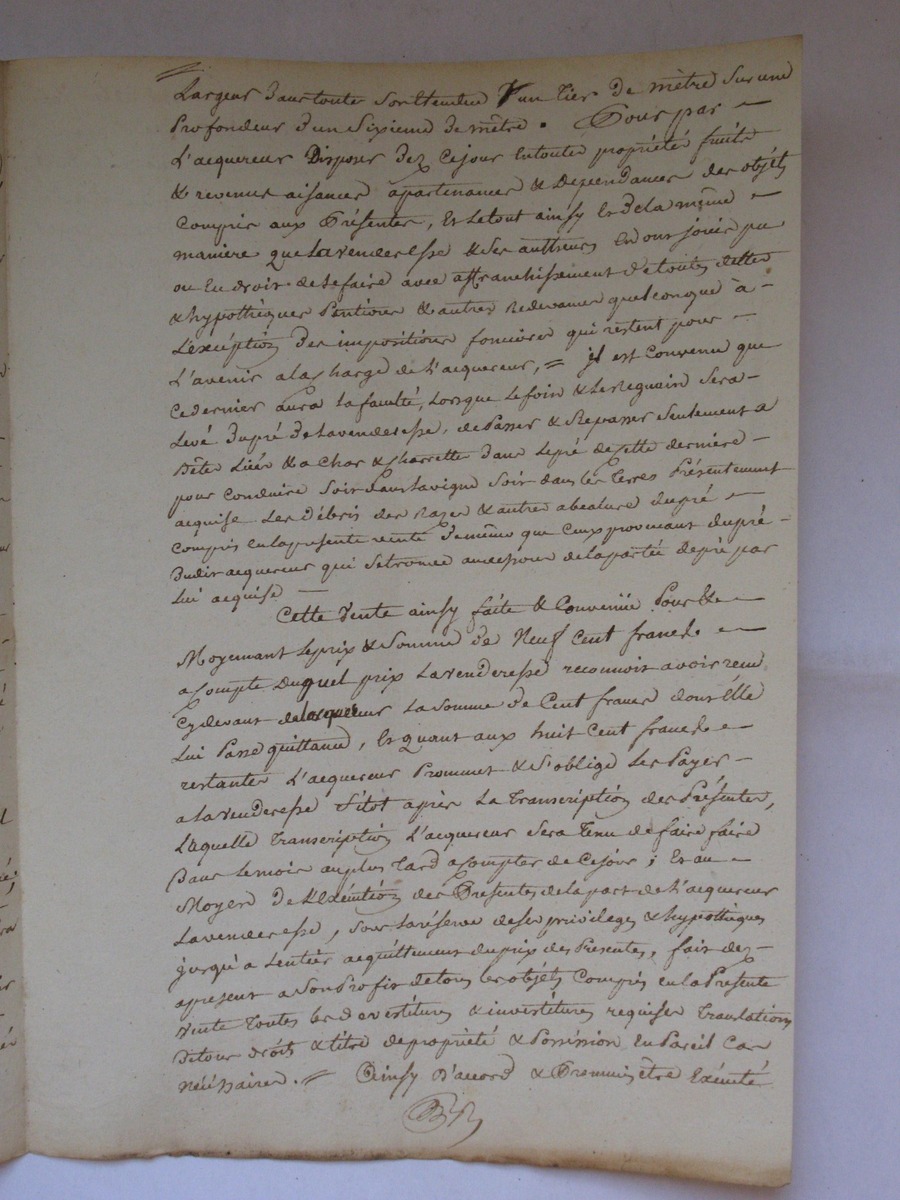 Largeur dans toute son Etendue d'un tier de mètre sur une
Profondeur d'un Sixieme de mètre. Pour par
L'acquereur Disposer dez ce jour en toute propriété fruits
& revenus aisances apartenances & Dependances des objéts
Compris aux Présentes, Et le tout ainsy Et de la même
maniere que la venderesse & Ses autheurs En ont jouïs pu
ou Eu droit de le faire avec affranchissement de toutes dettes
& hypothèques Rentieres & autres Redevances quelconque à
L'exception des impositions foncieres qui restent pour
L'avenir a la Charge de L'acquereur, = il est Convenu que
Ce dernier aura La faculté, Lorsque Le foin & Le Reguain Sera
Levé du pré de la venderesse, de Passer & Repasser Seulement a
Bêtes Liéés & a Char & Charrette dans Le pré de Cette derniere
pour Conduire Soit dans la vigne Soit dans les Terres Présentement
acquise Les Débris des Razes & autres du pré
Compris en la présente vente de même que Ceux provenant du pré
dudit acquereur qui Se trouve au dessous de la partie de pré par
Lui acquise
Cette vente ainsy faite & Convenüe Pour &
Moyennant Le prix & Somme de Neuf Cent francs
a Compte duquel prix La venderesse reconnoit avoir reçu
Cy devant de lacquereur La Somme de Cent francs dont Elle
Lui Passe quittance, Et quant aux huit Cent francs
restantes L'acquereur Prommet & S'oblige Les Payer
a La venderesse Sitot après La transcription des Présentes,
Laquelle transcription L'acquereur Sera Tenu de faire faire
Dans Le mois au plus tard a Compter de Ce jour; Et au
Moyen de L'exécution des Présentes de la part de L'acquereur
La venderesse, Sous La réserve de Ses privileges & hypothèques
jusqu'a L'entier acquittement du prix des Présentes, fait dez
apresent a Son Profit de tous les objéts Compris en la Présente
vente Toutes les devestitures & investitures requises translations
De tous droits & titre de propriété & Possession En Pareil Cas
nécéssaires. = Ainsy D'accord & Prommis être Exécuté